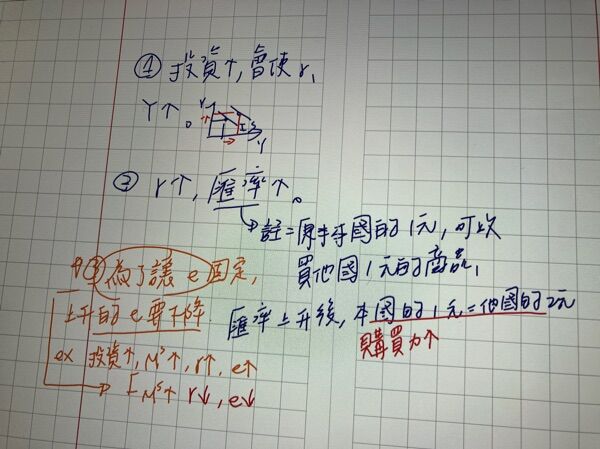 ① 投資↑, 會使 r,
Y↑。
r
IS
Y
② r↑, 匯率↑。
註=原本本國的1元, 可以
買他國1元的商品,
匯率上升後, 本國的1元=他國的2元
購買力↑
③ 為了讓 e 固定,
上升的 e 要下降.
ex 投資↑, Mˢ↑, r↑, e↑
Mˢ↑ r↓, e↓